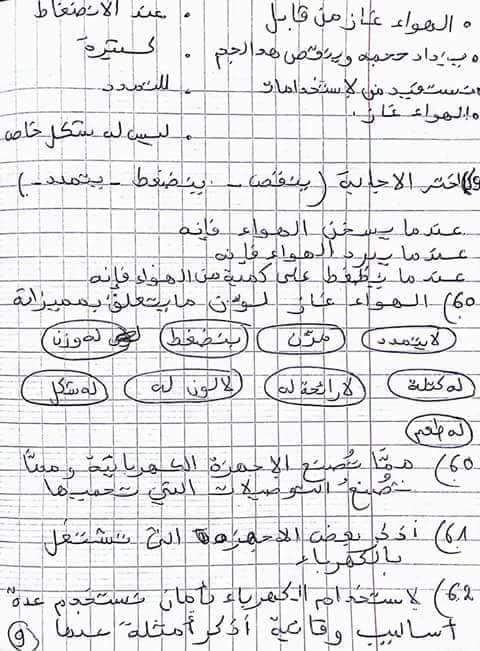 • الهواء غاز من قابل . عند الانضغاط
• يزداد حجمه وينقص هد الحجم . كبيرة
نستفيد من لاستخدامات . للتمدد
الهواء غاز . ليس له شكل خاص
59) اختر الاجابة (ينقص - ينضغط - يتمدد -)
عندما يسخن الهواء فإنه
عندما يبرد الهواء فإنه
عندما يظغط على كمية من الهواء فإنه
60) الهواء غاز لون ما يتعلق بمميزاته
لا يتمدد مرن ينضغط له وزن
له كتلة لا رائحة له لا لون له له شكل
له طعم
60) ممَّا تُصنع الاجهزة الكهربائية ومما
تُصنعُ التوصيلات التي تحميها
61) أذكر بعض الاجهزة التي تشتغل
بالكهرباء
62) لاستخدام الكهرباء بأمان نستخدم عدة
أساليب وقائية أذكر أمثلة عنها
9